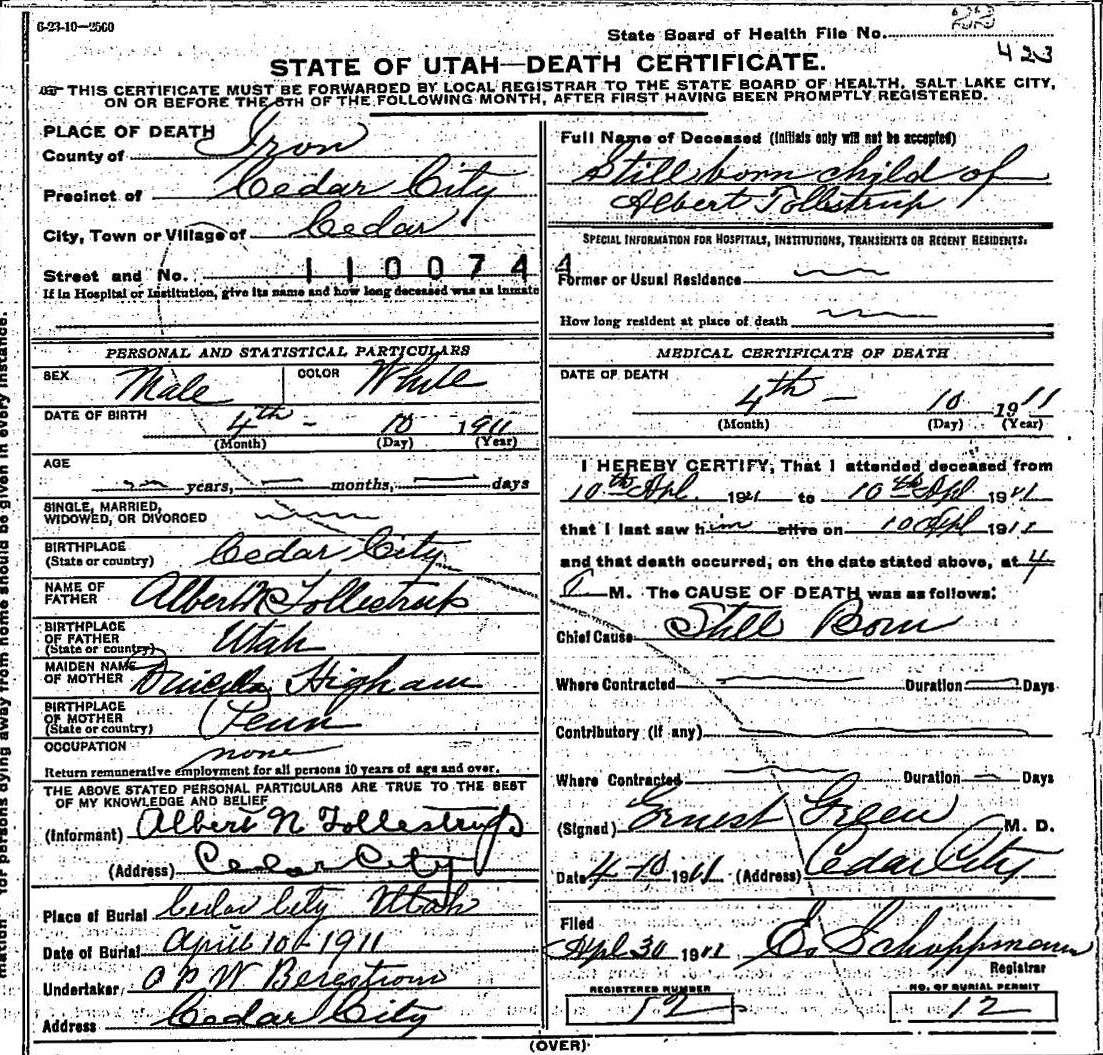 6-23-10-2560
State Board of Health File No. 22
423
STATE OF UTAH—DEATH CERTIFICATE.
THIS CERTIFICATE MUST BE FORWARDED BY LOCAL REGISTRAR TO THE STATE BOARD OF HEALTH, SALT LAKE CITY,
ON OR BEFORE THE 5TH OF THE FOLLOWING MONTH, AFTER FIRST HAVING BEEN PROMPTLY REGISTERED.
PLACE OF DEATH
County of Iron
Precinct of Cedar City
City, Town or Village of Cedar
Street and No. 1100744
If in Hospital or Institution, give its name and how long deceased was an inmate
PERSONAL AND STATISTICAL PARTICULARS
SEX Male COLOR White
DATE OF BIRTH 4th - 10 1911
(Month) (Day) (Year)
AGE
years, months, days
SINGLE, MARRIED,
WIDOWED, OR DIVORCED
BIRTHPLACE
(State or country) Cedar City
NAME OF
FATHER Albert N Tollestrup
BIRTHPLACE
OF FATHER
(State or country) Utah
MAIDEN NAME
OF MOTHER Higham
BIRTHPLACE
OF MOTHER
(State or country) Penn
OCCUPATION none
Return remunerative employment for all persons 10 years of age and over.
THE ABOVE STATED PERSONAL PARTICULARS ARE TRUE TO THE BEST
OF MY KNOWLEDGE AND BELIEF
(Informant) Albert N Tollestrup
(Address) Cedar City
Place of Burial Cedar City Utah
Date of Burial April 10 - 1911
Undertaker O P W Bergstrom
Address Cedar City
Full Name of Deceased (Initials only will not be accepted)
Still born child of
Albert Tollestrup
SPECIAL INFORMATION FOR HOSPITALS, INSTITUTIONS, TRANSIENTS OR RECENT RESIDENTS:
Former or Usual Residence
How long resident at place of death
MEDICAL CERTIFICATE OF DEATH
DATE OF DEATH
4th - 10 1911
(Month) (Day) (Year)
I HEREBY CERTIFY, That I attended deceased from
10th Apl. 1911 to 10th Apl 1911
that I last saw him alive on 10 Apl 1911
and that death occurred, on the date stated above, at 4
M. The CAUSE OF DEATH was as follows:
Chief Cause Still Born
Where Contracted Duration Days
Contributory (if any)
Where Contracted Duration Days
(Signed) Ernest Green M. D.
Date 4-10 1911 (Address) Cedar City
Filed
Apl 30 1911 Schoppmann
Registrar
REGISTERED NUMBER
12
NO. OF BURIAL PERMIT
12
(OVER)
for persons dying away from home should be given in every instance.